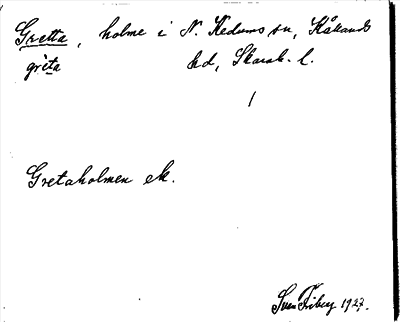 Gretta, holme i N. Kedums sn, Kåkands
grèta hd, Skarab. l.
/
Gretaholmen ek.
Sven Friberg 1927.